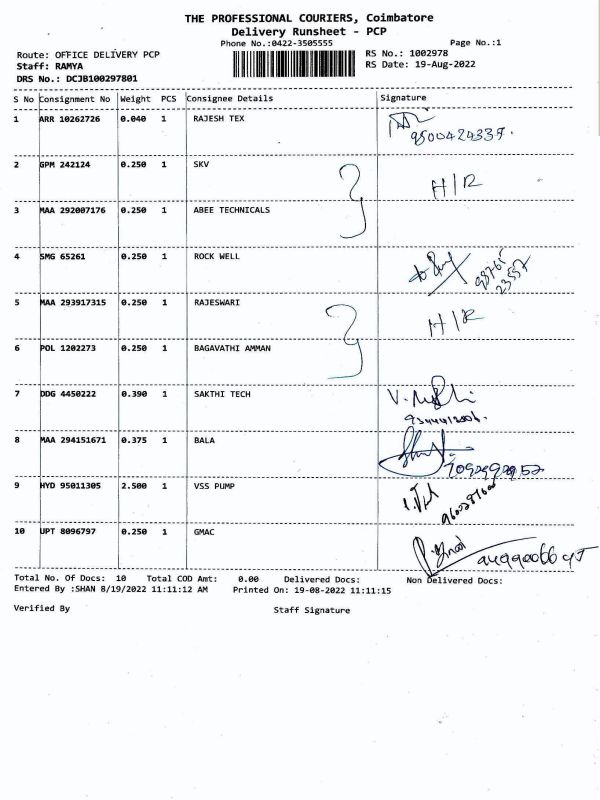 THE PROFESSIONAL COURIERS, Coimbatore
Delivery Runsheet - PCP
Phone No.:0422-3505555 Page No.:1
Route: OFFICE DELIVERY PCP RS No.: 1002978
Staff: RAMYA RS Date: 19-Aug-2022
DRS No.: DCJB100297801
S No Consignment No Weight PCS Consignee Details Signature
1 ARR 10262726 0.040 1 RAJESH TEX
9500424337.
2 GPM 242124 0.250 1 SKV
H/R
3 MAA 292007176 0.250 1 ABEE TECHNICALS
4 SMG 65261 0.250 1 ROCK WELL
98765
23557
5 MAA 293917315 0.250 1 RAJESWARI
H/R
6 POL 1202273 0.250 1 BAGAVATHI AMMAN
7 DDG 4450222 0.390 1 SAKTHI TECH
8 MAA 294151671 0.375 1 BALA
9 HYD 95011305 2.500 1 VSS PUMP
10 UPT 8096797 0.250 1 GMAC
Total No. Of Docs: 10 Total COD Amt: 0.00 Delivered Docs: Non Delivered Docs:
Entered By :SHAN 8/19/2022 11:11:12 AM Printed On: 19-08-2022 11:11:15
Verified By Staff Signature